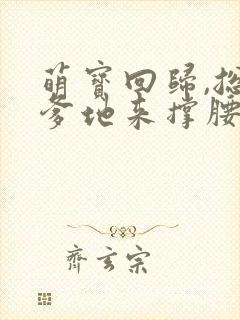 萌寳回歸,总
爹地来撑腰
齊玄宗